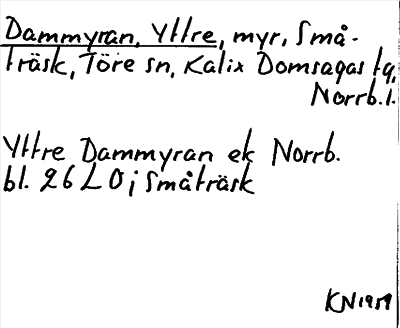 Dammyran, Yttre, myr, Små-
träsk, Töre sn, Kalix Domsagas tg,
Norrb. l.
Yttre Dammyran ek Norrb.
bl. 26 L 0 j Småträsk
KN 1959